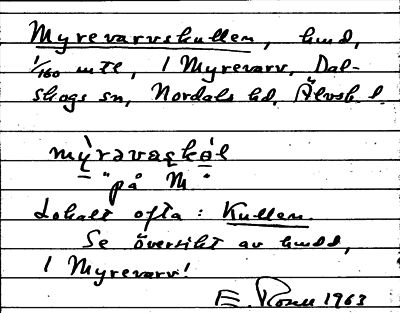 Myrevarvskullen, hmd,
1/160 mtl, 1 Myrevarv, Dal-
skogs sn, Nordals hd, Älvsb. l.
mỳrəvaʂkàl
"på M"
Lokalt ofta: Kullen.
Se översikt av hmdd,
1 Myrevarv!
E. 1963